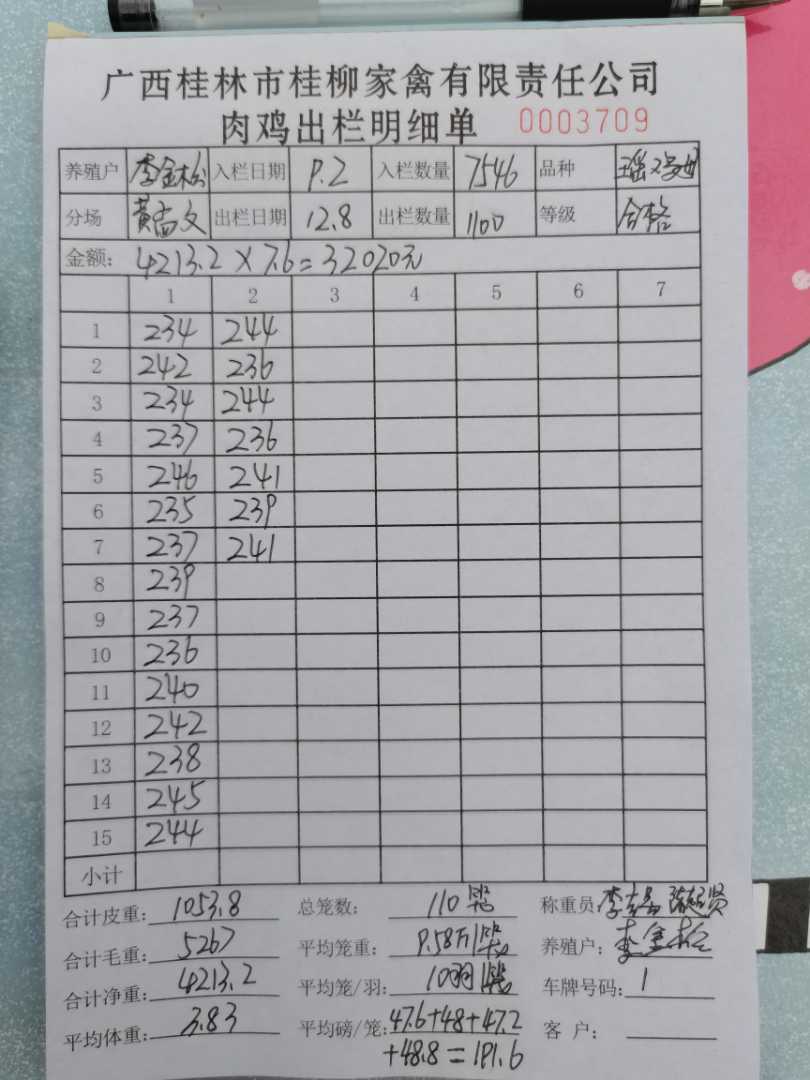 广西桂林市桂柳家禽有限责任公司
肉鸡出栏明细单 0003709
养殖户 李金松 入栏日期 9.2 入栏数量 7546 品种 瑶鸡母
分场 黄高文 出栏日期 12.8 出栏数量 1100 等级 合格
金额: 4213.2×7.6=32020元
1 2 3 4 5 6 7
1 234 244
2 242 236
3 234 244
4 237 236
5 246 241
6 235 239
7 237 241
8 239
9 237
10 236
11 240
12 242
13 238
14 245
15 244
小计
合计皮重: 1053.8 总笼数: 110笼 称重员:
合计毛重: 5267 平均笼重: 9.58斤/笼 养殖户: 李金松
合计净重: 4213.2 平均笼/羽: 10羽/笼 车牌号码: 1
平均体重: 3.83 平均磅/笼: 47.6+48+47.2 客户:
+48.8=191.6